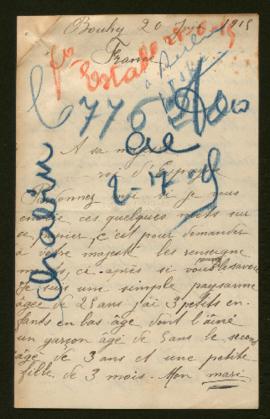 Bouhy 20 Juin 1915
France
Estado 28-6-15
776
A sa m
roi d'Espagne
Pardonnez moi si je vous
envoie ces quelques mots sur
ce papier, c'est pour demander
à votre majesté les renseigne
ments, ce après si vous pouvez le savoir
Je suis une simple paysanne
âgée de 25 ans j'ai 3 petits en-
fants en bas âge dont l'aîné
un garçon âgé de 5 ans le second
âgé de 3 ans et une petite
fille de 3 mois. Mon mari
Chabin